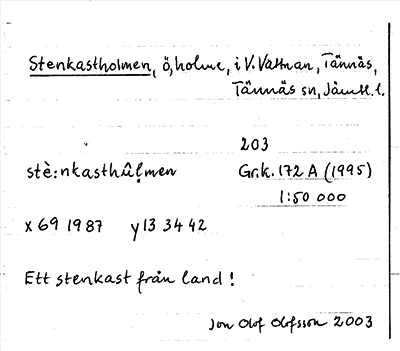 Stenkastholmen, ö, holme, i V. Vattnan, Tännäs,
Tännäs sn, Jämtl. l.
203
stè:nkasthûl̥men Gr.k. 172 A (1995)
1:50 000
x 69 19 87 y 13 34 42
Ett stenkast från land!
Jon Olof Olofsson 2003